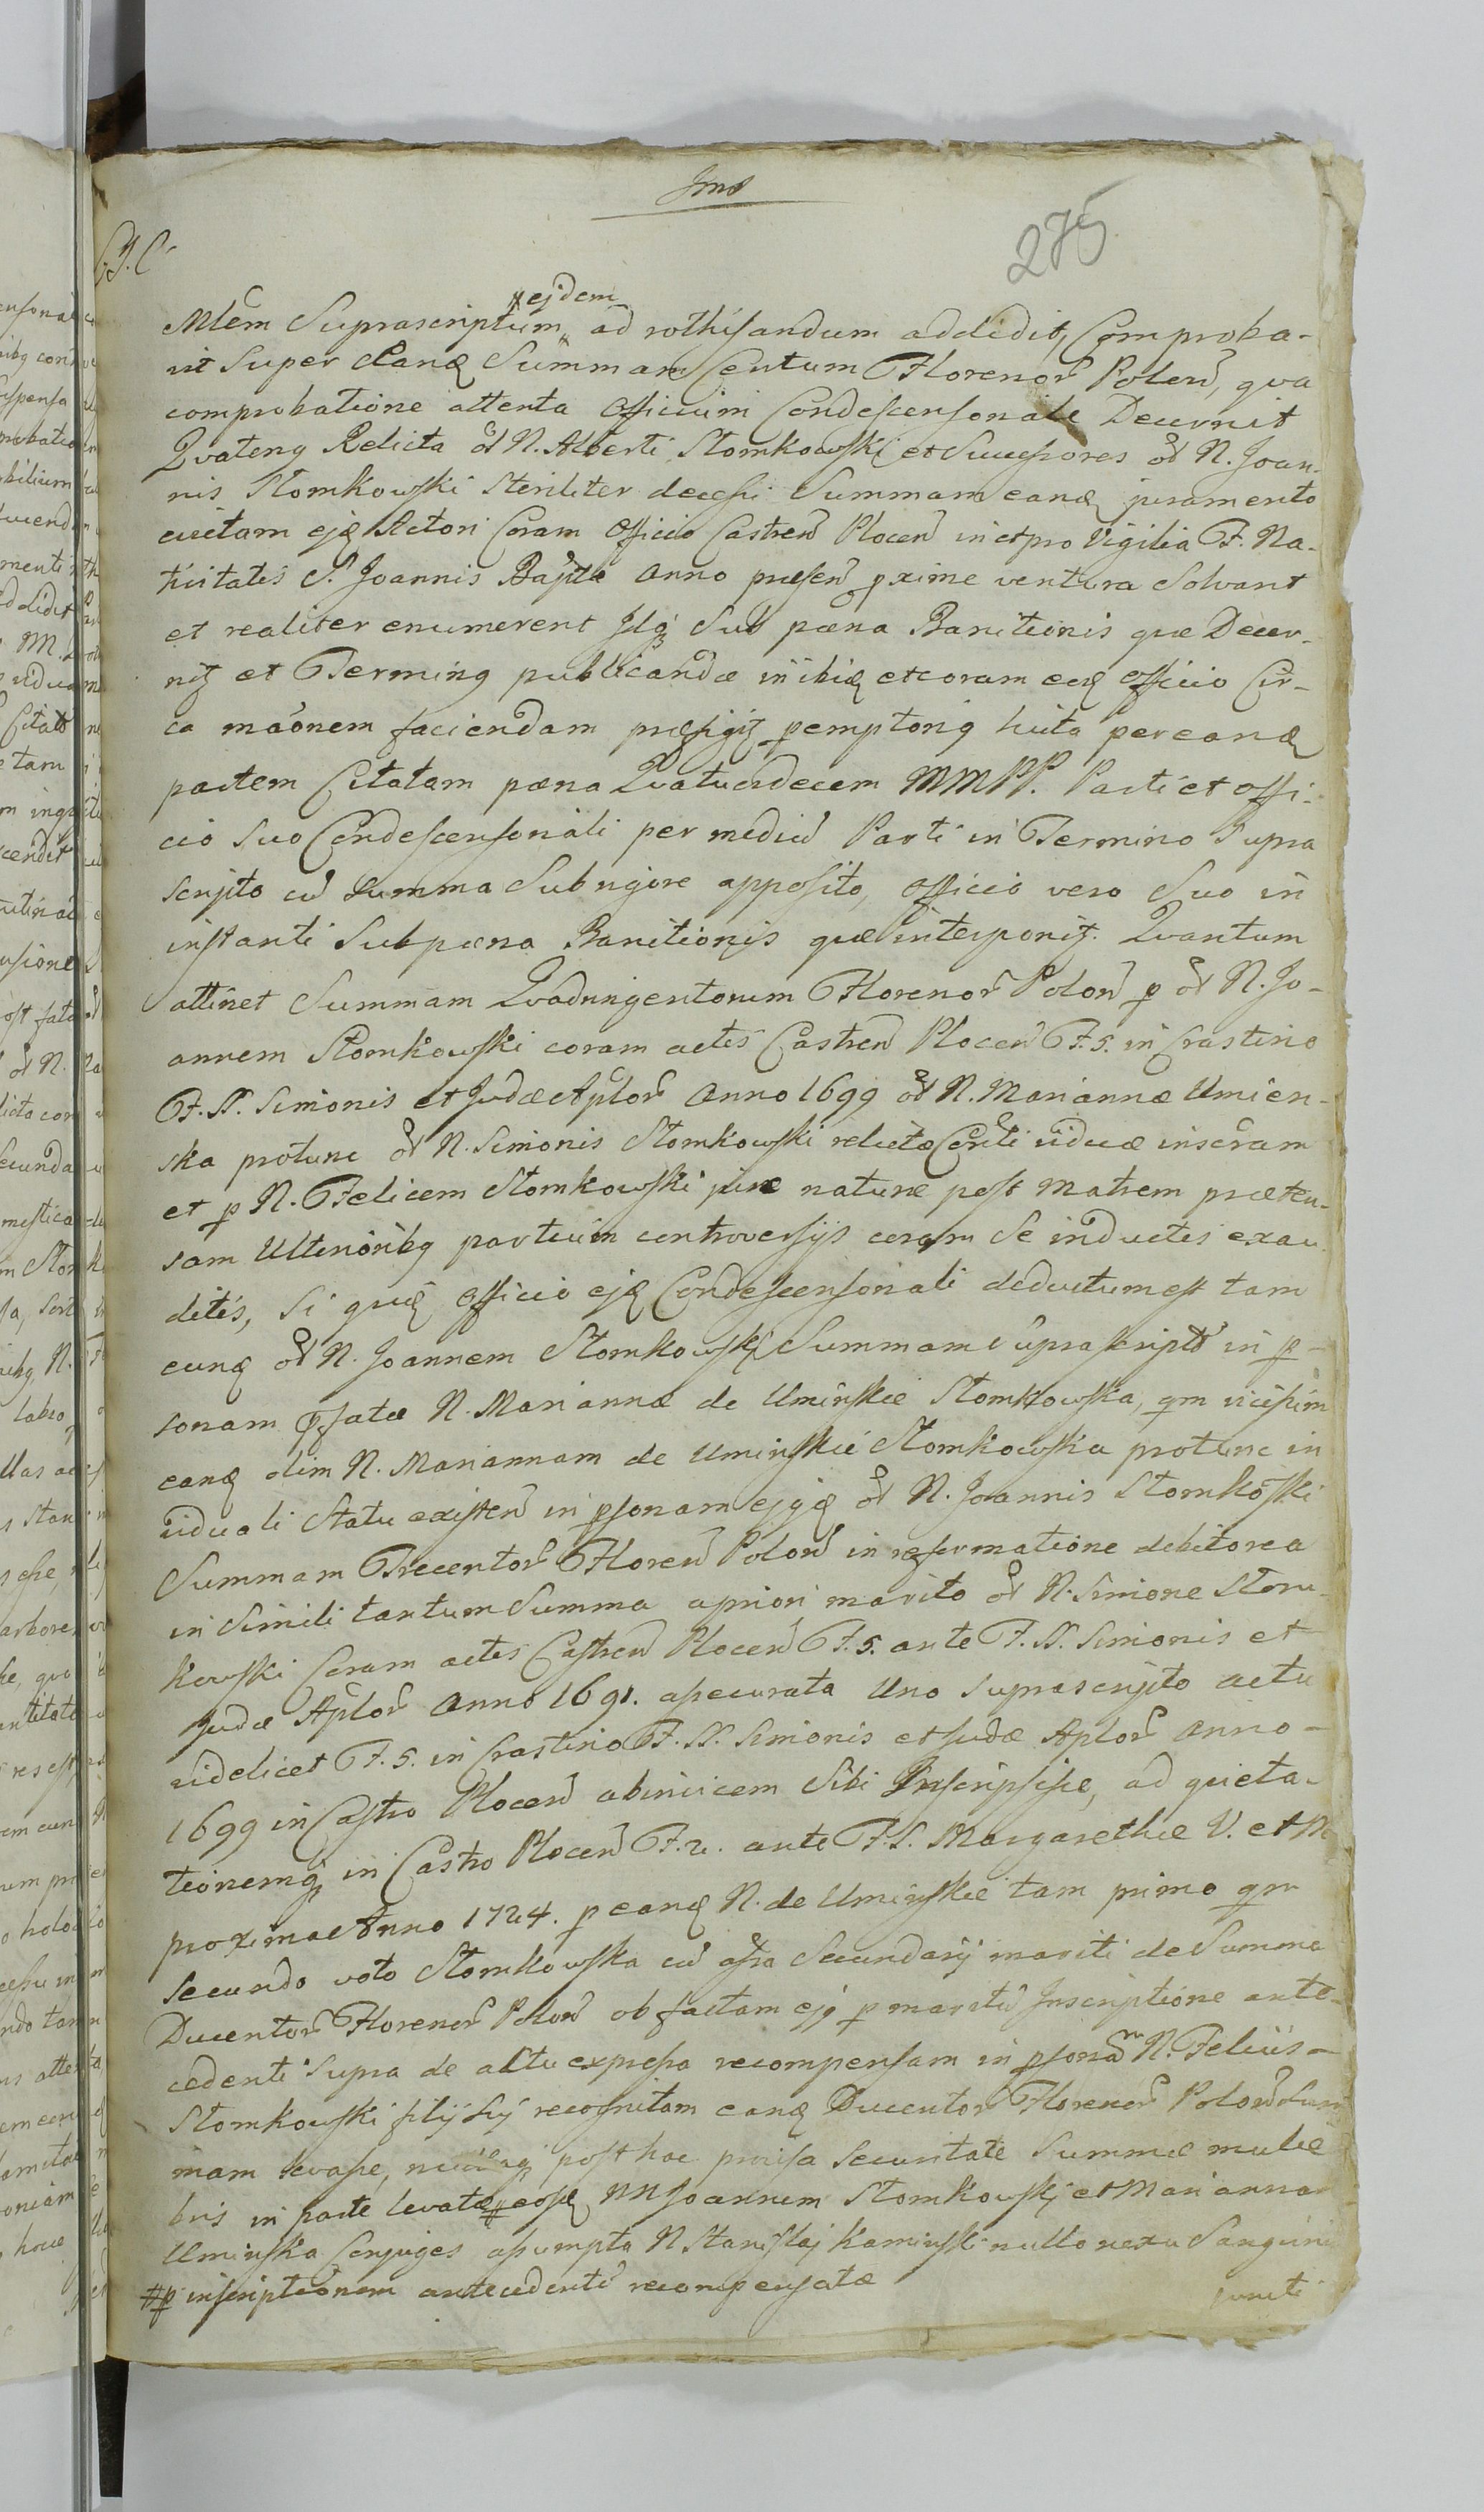 Imo
275
C. I. C.
ejdem
Mlem Suprascriptum, ad rothisandum addidit, Comproba-
vit Super eanq Summam Centum Florenor Polon, qva
comprobatione attenta Officium Condescensonale Decernit
Qvateny Relicta od N. Alberti Stomkowski et Successores od N. Joan-
nis Stomkowski steriliter decessi Summam eanq juramento
evictam ejq Actori Coram Officio Castren Plocen in et pro Vigilia F. Na-
tivitatis S. Joannis Baptæ Anno præsen pxime ventura Solvant
et realiter enumerent Idq Sub pæna Banitionis quæ Decer-
nit et Terming publicandæ inibiq et coram eoq Officio Cir-
ca maonem faciendam præfigit pemptorig luita per eanq
partem Citatam pæna Qvatuordecem MMPP. Parti et Offi-
cio Suo Condescensonali per mediu Parti in Termino Supra
scripto cu Summa Sub rigore apposito, Officio vero Suo in
instanti Sub pæna Banitionis quæ interponit. Qvantum
attinet Summam Qvadringentorum Florenor Polon p od N. Jo-
annem Stomkowski coram actis Castren Plocen F. 5. in Crastino
F. SS. Simonis et Judæ Aplor Anno 1699 od N. Mariannæ Umien-
ska protunc od N. Simonis Stomkowski relictæ Conti viduæ inscram
et p N. Felicem Stomkowski jure naturæ post Matrem præten-
sam Ulterioribg partium controversijs coram Se inductis exau-
ditis, Si quiq Officio ejq Condescensonali deductum est tam
eunq od N. Joannem Stomkowski Summam Suprascripto in p-
sonam præfatæ N. Mariannæ de Uminskie Stomkowska, qm vicissim
eanq olim N. Mariannam de Uminskie Stomkowska protunc in
viduali Statu existen in psonam ejqq od N. Joannis Stomkoski
Summam Trecentor Floren Polon in reformatione debitorea
in Simili tantum Summa a priori marito od N. Simone Stom-
kowski Coram actis Castren Plocen F. 5. ante F. SS. Simonis et
Judæ Aplor Anno 1691. assecurata Uno Suprascripto actu
videlicet F. 5. in Crastino F. SS. Simonis et Judæ Aplor Anno-
1699 in Castro Plocen ab invicem Sibi Inscripsisse, ad quieta-
tionemq in Castro Plocen F. 2. ante F. S. Margarethæ V. et M
proxima Anno 1724. p eanq N. de Uminskie tam primo qm
Secundo voto Stomkowska cu assa Secundarij mariti de Summa
Ducentor Florenor Polon ob factam ejq p maritu Inscriptione ante-
cedenti Supra de actu expressa recompensam in psonam N. Felicis-
Stomkowski filij Sij recognitam eanq Ducentor Florenor Polon Sum
mam levasse, posthac provisa Securitate Summæ mulie
bris in parte levatæ # eosq NN Joannem Stomkowskj et Mariannam
Uminska Conjuges assumpto N Stanislaj Kaminski nullo nexu Sanguinis
# p inscriptionem antecedente recompensatæ
juncti